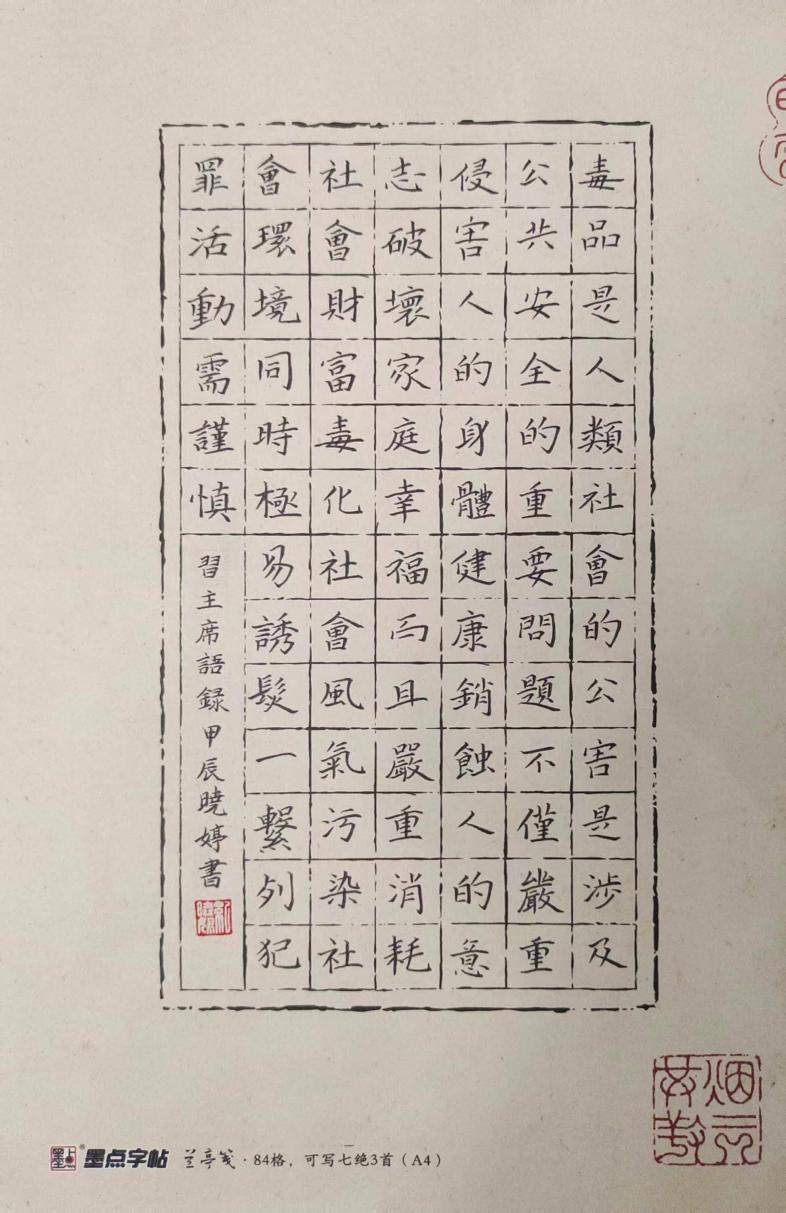 毒品是人類社會的公害是涉及
公共安全的重要問題不僅嚴重
侵害人的身體健康銷蝕人的意
志破壞家庭幸福而且嚴重消耗
社會財富毒化社會風氣污染社
會環境同時極易誘髮一繫列犯
罪活動需謹慎
習主席語録甲辰曉婷書
墨点字帖 兰亭笺·84格，可写七绝3首（A4）